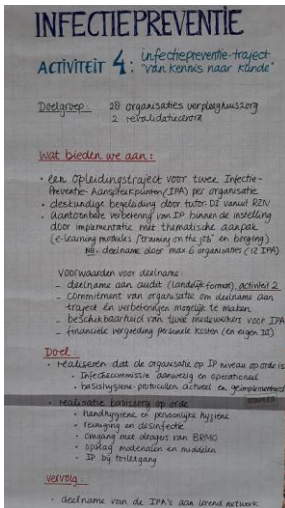 INFECTIEPREVENTIE
ACTIVITEIT 4: infectiepreventie-traject
"van kennis naar kunde"
Doelgroep: 28 organisaties verpleeghuiszorg
2 revalidatiecentra
Wat bieden we aan:
• een opleidingstraject voor twee Infectie-
Preventie-Aanspreekpunten (IPA) per organisatie
• deskundige begeleiding door tutor DI vanuit RZN
• aantoonbare verbetering van IP binnen de instelling
door implementatie met thematische aanpak
(e-learning modules / training on the job en borging)
NB: deelname door max 6 organisaties (12 IPA)
Voorwaarden voor deelname:
- deelname aan audit (landelijk format), activiteit 2
- Commitment van organisatie om deelname aan
traject en verbeteringen mogelijk te maken
- beschikbaarheid van twee medewerkers voor IPA
- financiële vergoeding personele kosten (en eigen DI)
Doel:
• realiseren dat de organisatie op IP niveau op orde is
• Infectiecommissie aanwezig en operationeel
• basishygiëne-protocollen actueel en geïmplementeerd
• realisatie basiszorg op orde
• handhygiëne en persoonlijke hygiëne
• reiniging en desinfectie
• omgang met dragers van BRMO
• opslag materialen en middelen
• IP bij toiletgang
vervolg:
• deelname van de IPA's aan lerend netwerk